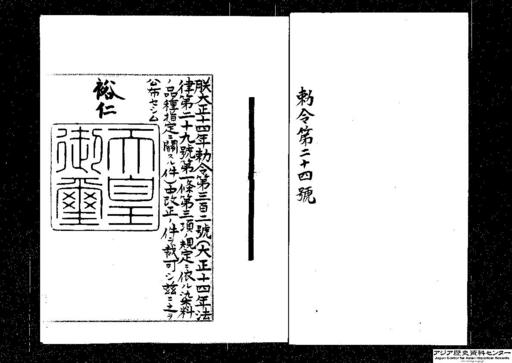 勅令第二十四號
朕大正十四年勅令第三百二號(大正十四年法
律第二十九號第一條第三項ノ規定ニ依ル染料
ノ品種指定ニ關スル件)中改正ノ件ヲ裁可シ茲ニ之ヲ
公布セシム
裕仁
天皇
御璽
アジア歴史資料センター
Japan Center for Asian Historical Records